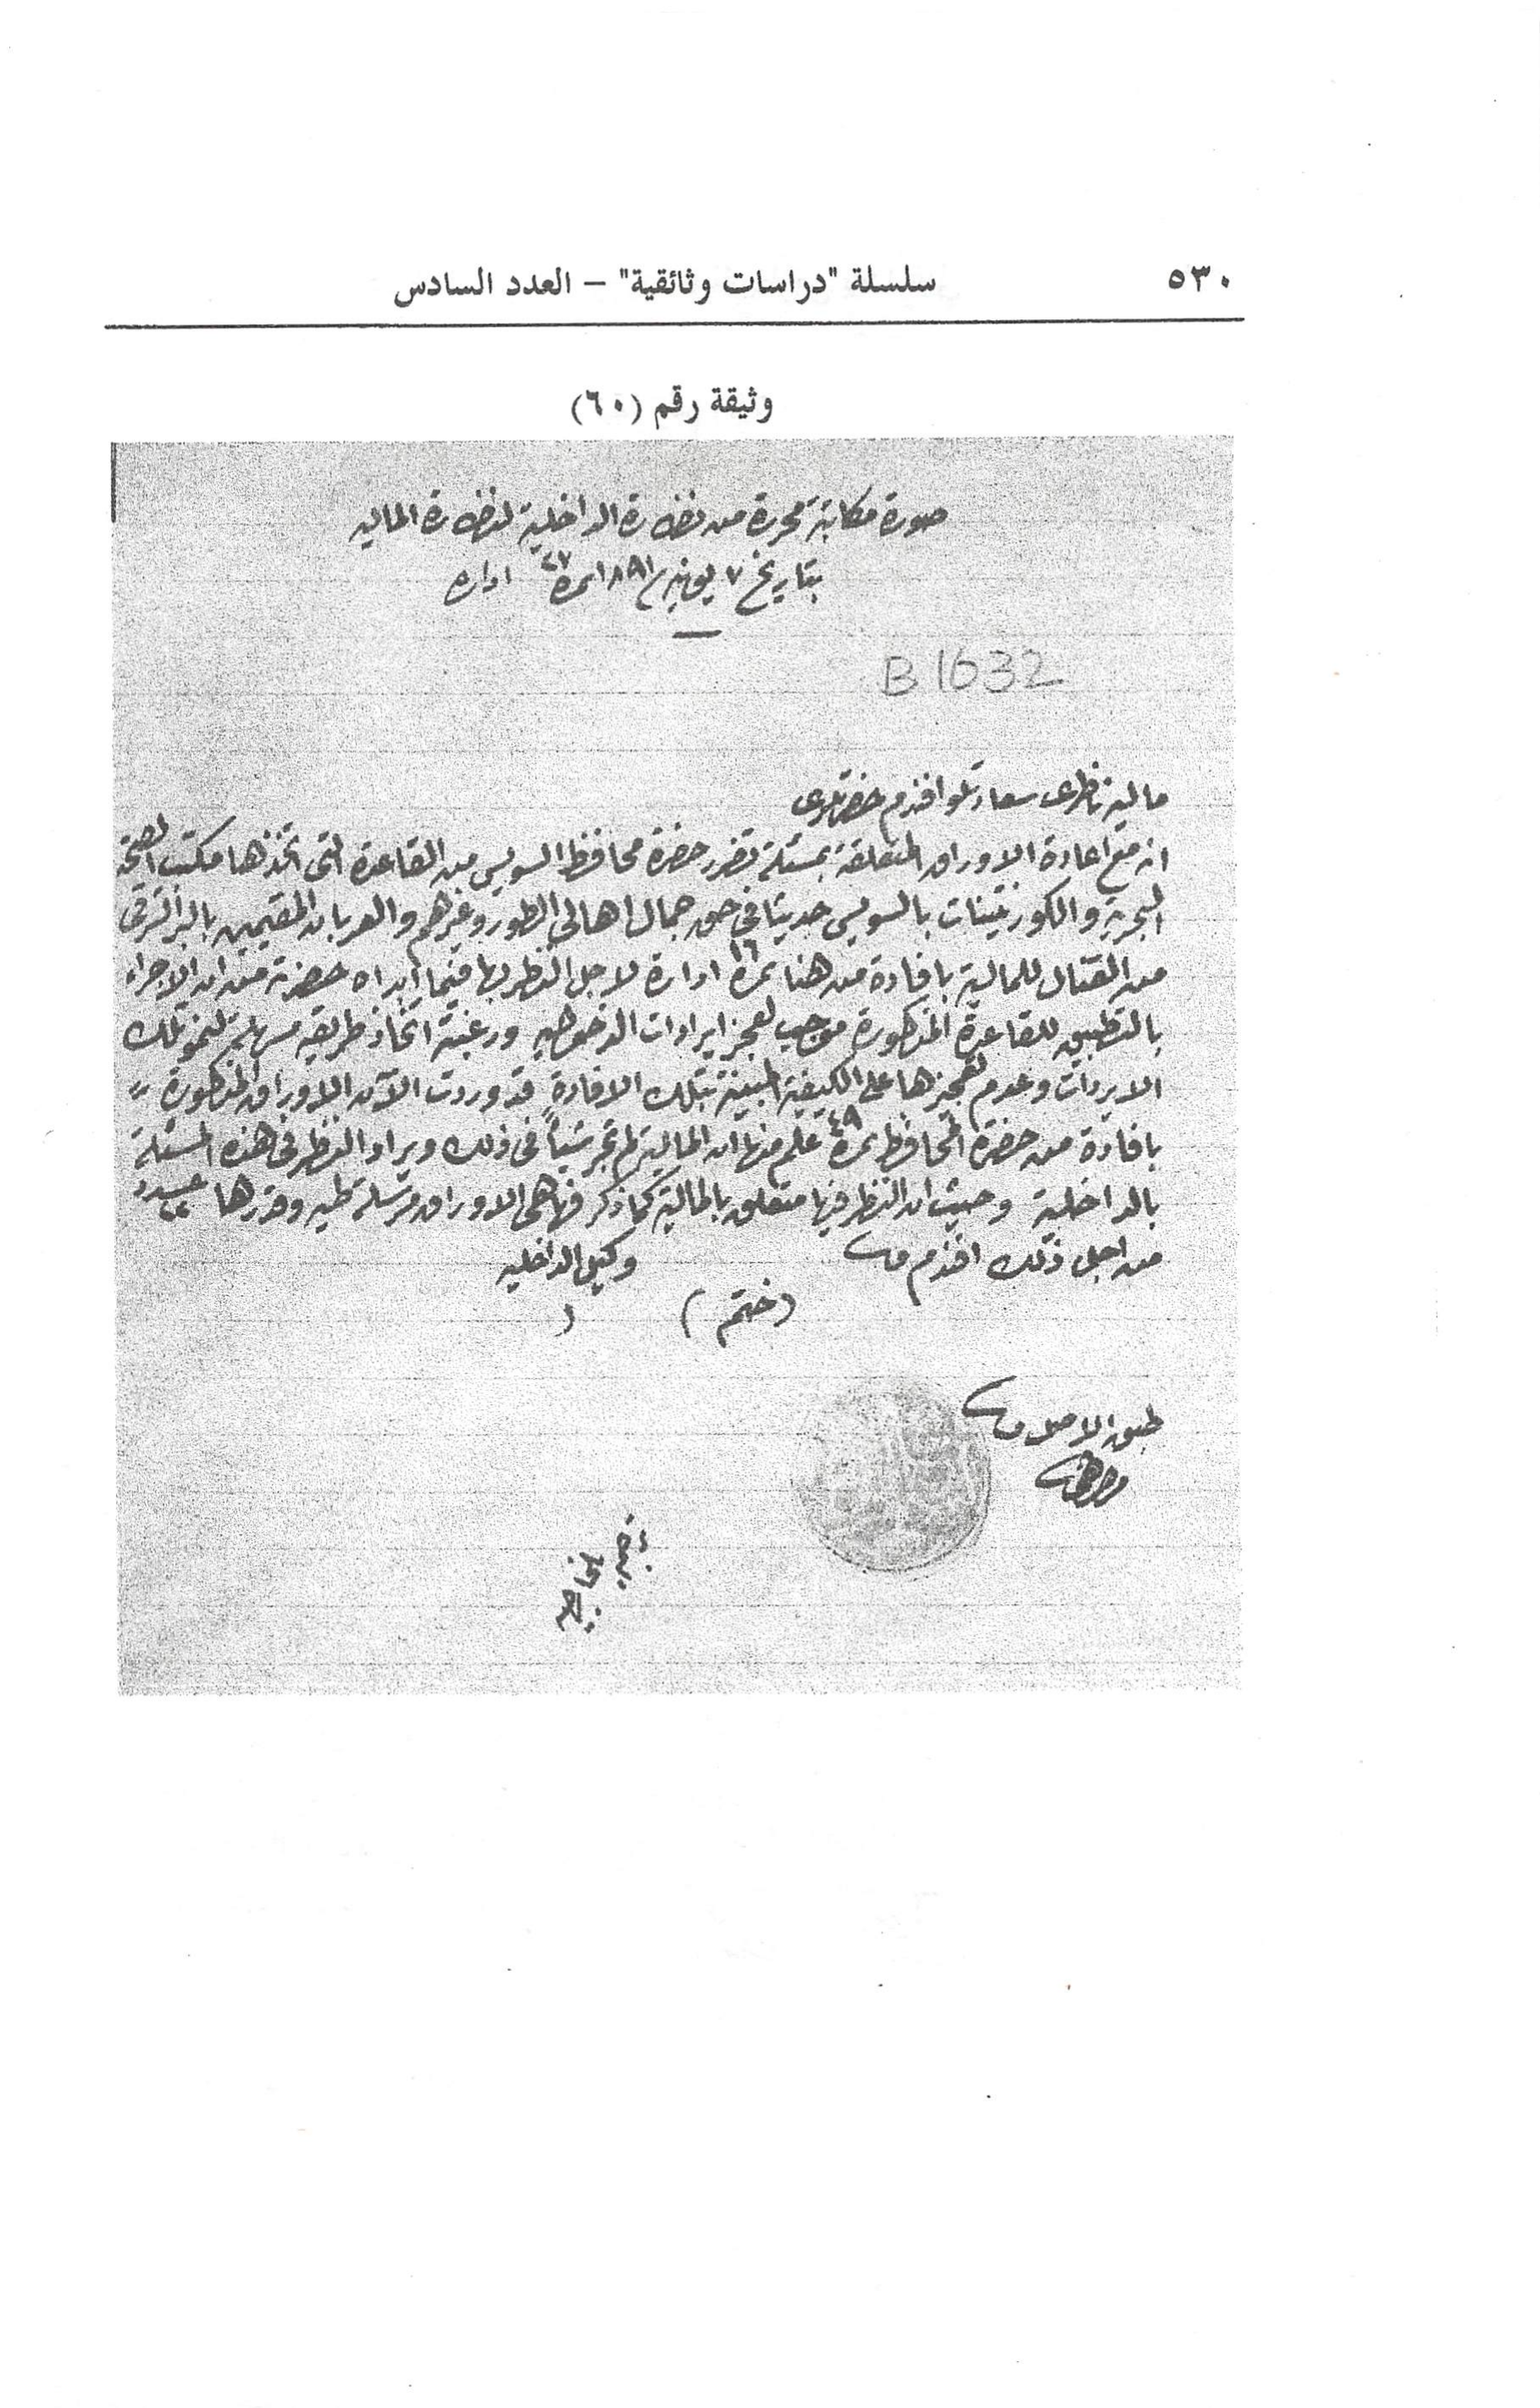 ٥٣٠
سلسلة "دراسات وثائقية" – العدد السادس
وثيقة رقم (٦٠)
صورة مكاتبة محررة من نظارة الداخلية لنظارة الماليه
بتاريخ ٧ يونيه ١٨٨١ نمرة ٤٧ اداره
B 1632
ماليه ناظرى سعادتلو افندم حضرتلرى
انه مع اعادة الاوراق المتعلقة بمسئلة تضرر حضرة محافظ السويس من القاعدة التى اتخذها مكتب الصحة
البحرية والكورنتينات بالسويس حديثا فى حق جمال اهالى الطور وغيرهم والعربان المقيمين بالبر الشرقى
من القتال للمالية بافادة من هنا نمرة ١٦ ادارة لاجل النظر بها فيما ابداه حضرته من ان الاجراء
بالتطبيق للقاعدة المذكورة موجب لعجز ايرادات الدخوليه ورغبته اتخاذ طريقه مسهلة لنمو تلك
الايردات وعدم تعجيزها على الكيفية المبينة بتلك الافادة قد وردت الآن الاوراق المذكورة
بافادة من حضرة المحافظ نمرة ٤٨ علم منها ان المالية لم تجر شيئاً فى ذلك ويراد النظر فى هذه المسئلة
بالداخلية وحيث ان النظر فيها متعلق بالمالية كما ذكر فها هى الاوراق مرسلة طيه وقدرها عدد
من اجل ذلك افندم
وكيل الداخليه
(ختم)
طبق الاصل